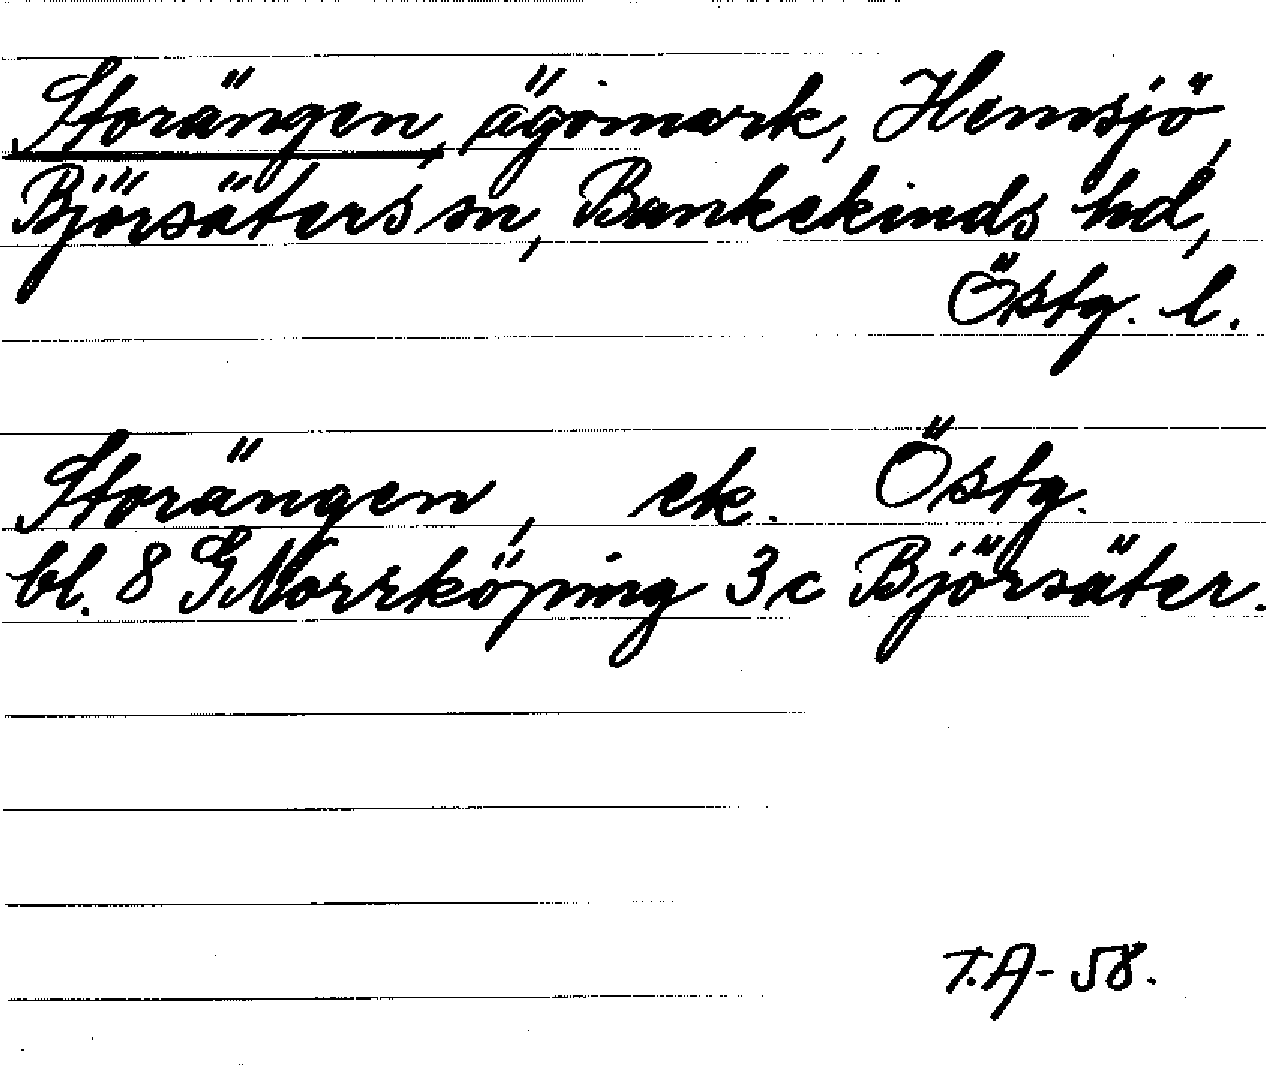 Storängen, ägomark, Hemsjö,
Björsäters sn, Bankekinds hd,
Östg. l.
Storängen, ek. Östg.
bl. 8 G Norrköping 3 c Björsäter.
T.A-58.